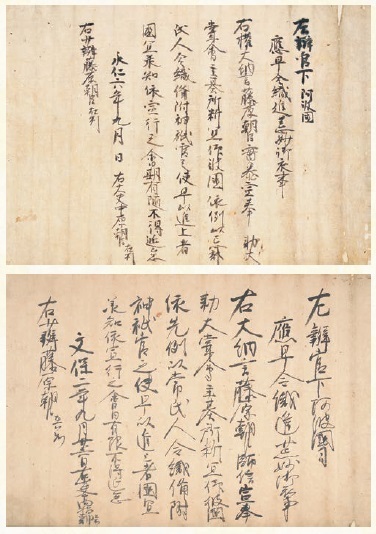 左辨官下 阿波國
應早令織進荒妙御衣事
右權大納言藤原朝臣實泰宣奉 勅大
嘗會主基所料宜仰彼國依例以忌部
氏人令織備附神祇官之使早以進上者
國宜承知依宣行之會期有限不得違怠
永仁六年九月 日 右大史中原朝臣在判
右少辨藤原朝臣在判
左辨官下阿波國司
應早令織進荒妙御衣事
右大納言藤原朝臣師信宣奉
勅大嘗會主基所料宜仰彼國
依先例以當氏人令織備附
神祇官之使早以進上者國宜
承知依宣行之會日有限不得違怠
文保二年九月廿二日
右少辨藤原朝臣在判